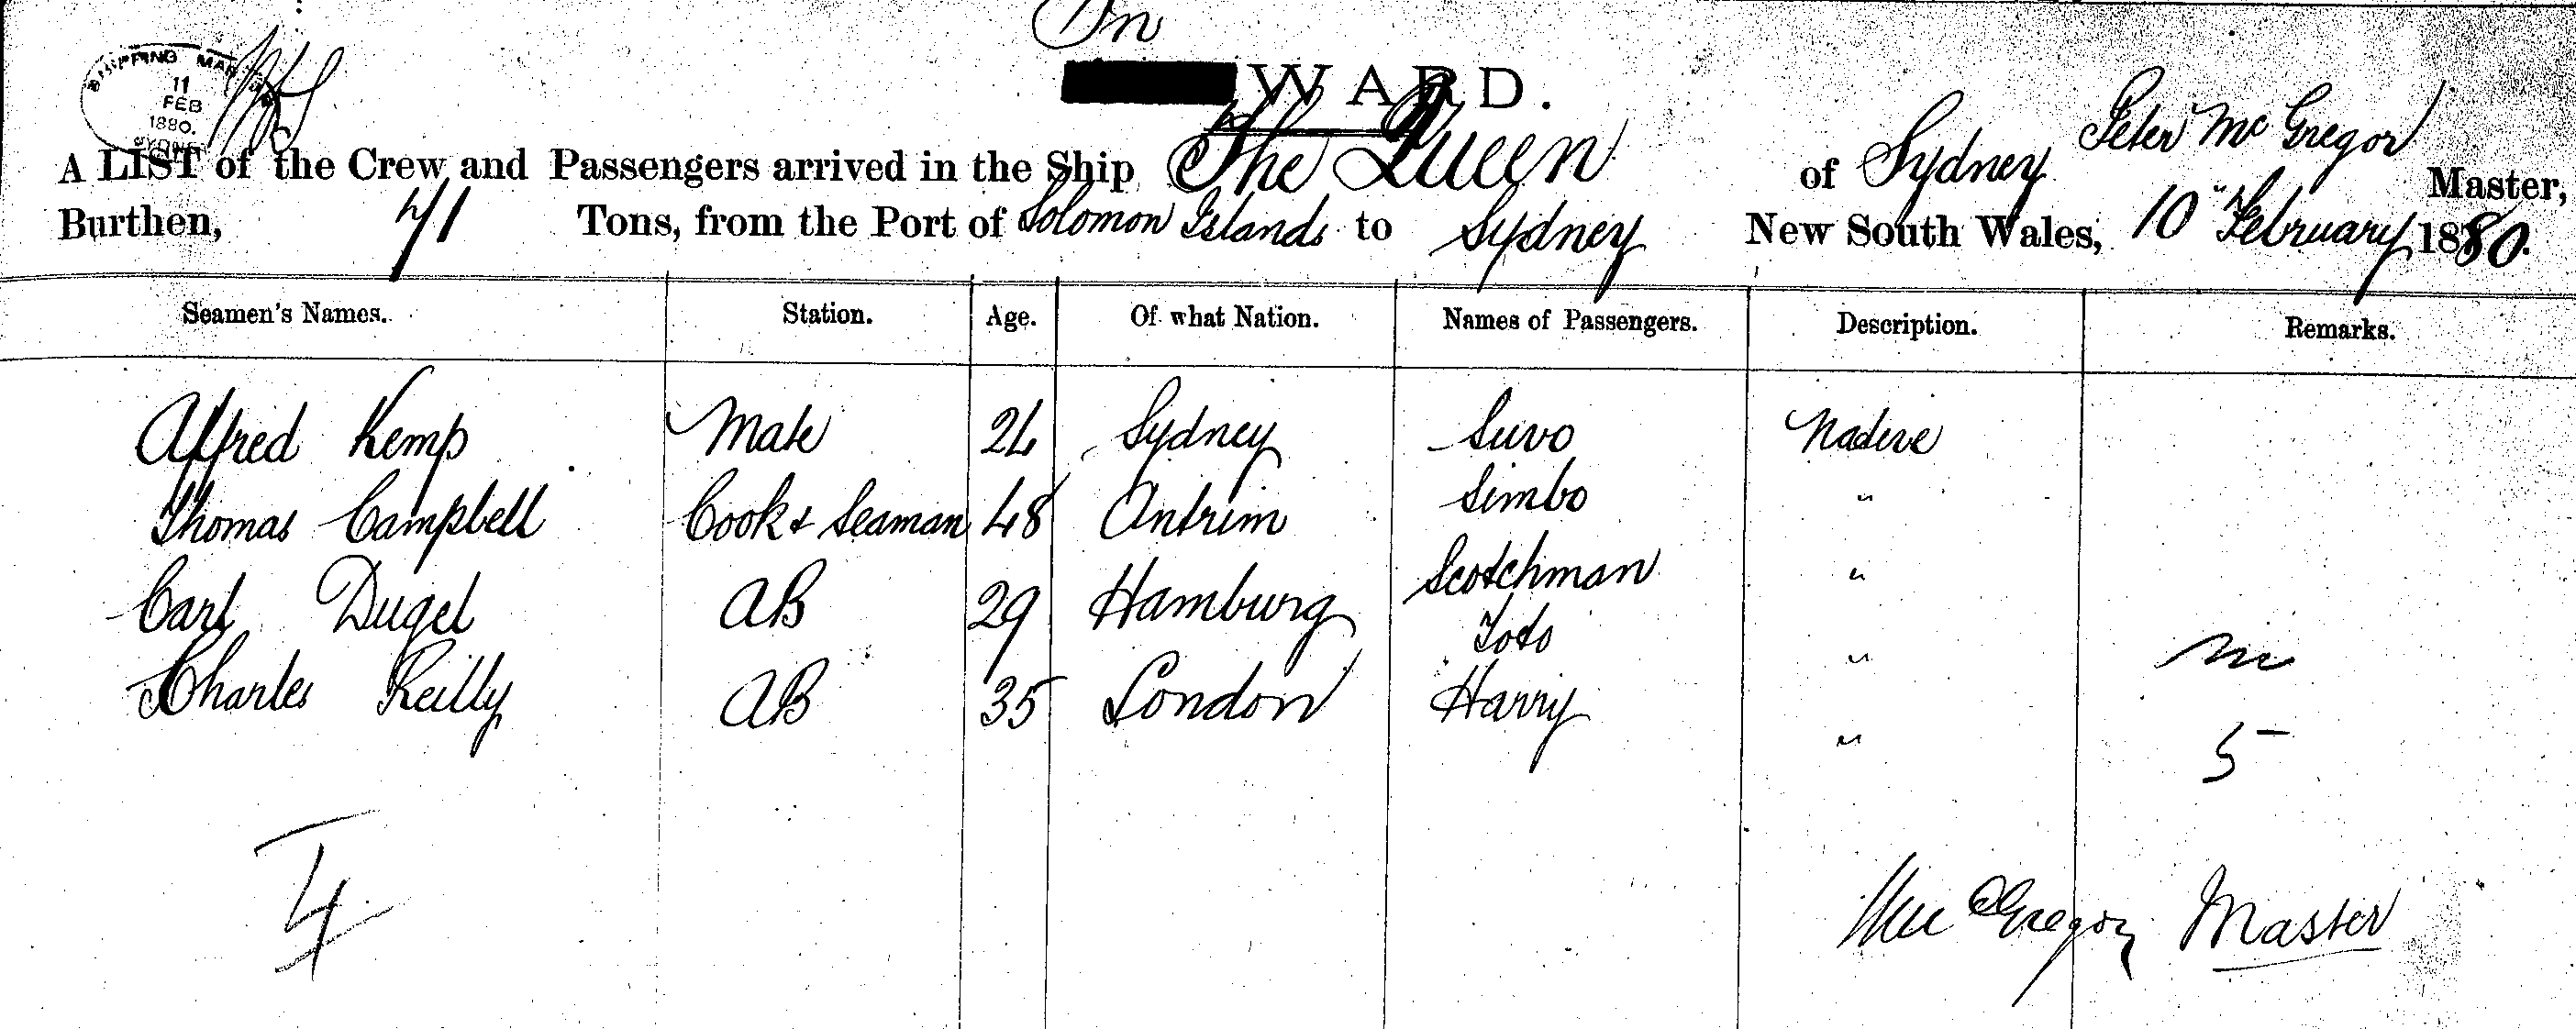 In
WARD.
SHIPPING MAS
11
FEB
1880.
SYDNEY
A LIST of the Crew and Passengers arrived in the Ship The Queen of Sydney Peter Mc Gregor Master,
Burthen, 41 Tons, from the Port of Solomon Islands to Sydney New South Wales, 10" February 1880.
Seamen's Names. Station. Age. Of what Nation. Names of Passengers. Description. Remarks.
Alfred Kemp Mate 24 Sydney Suvo Native
Thomas Campbell Cook & Seaman 48 Antrim Simbo "
Carl Dugel AB 29 Hamburg Scotchman "
Toto "
Charles Reilly AB 35 London Harry "
5
4
Mc Gregor Master